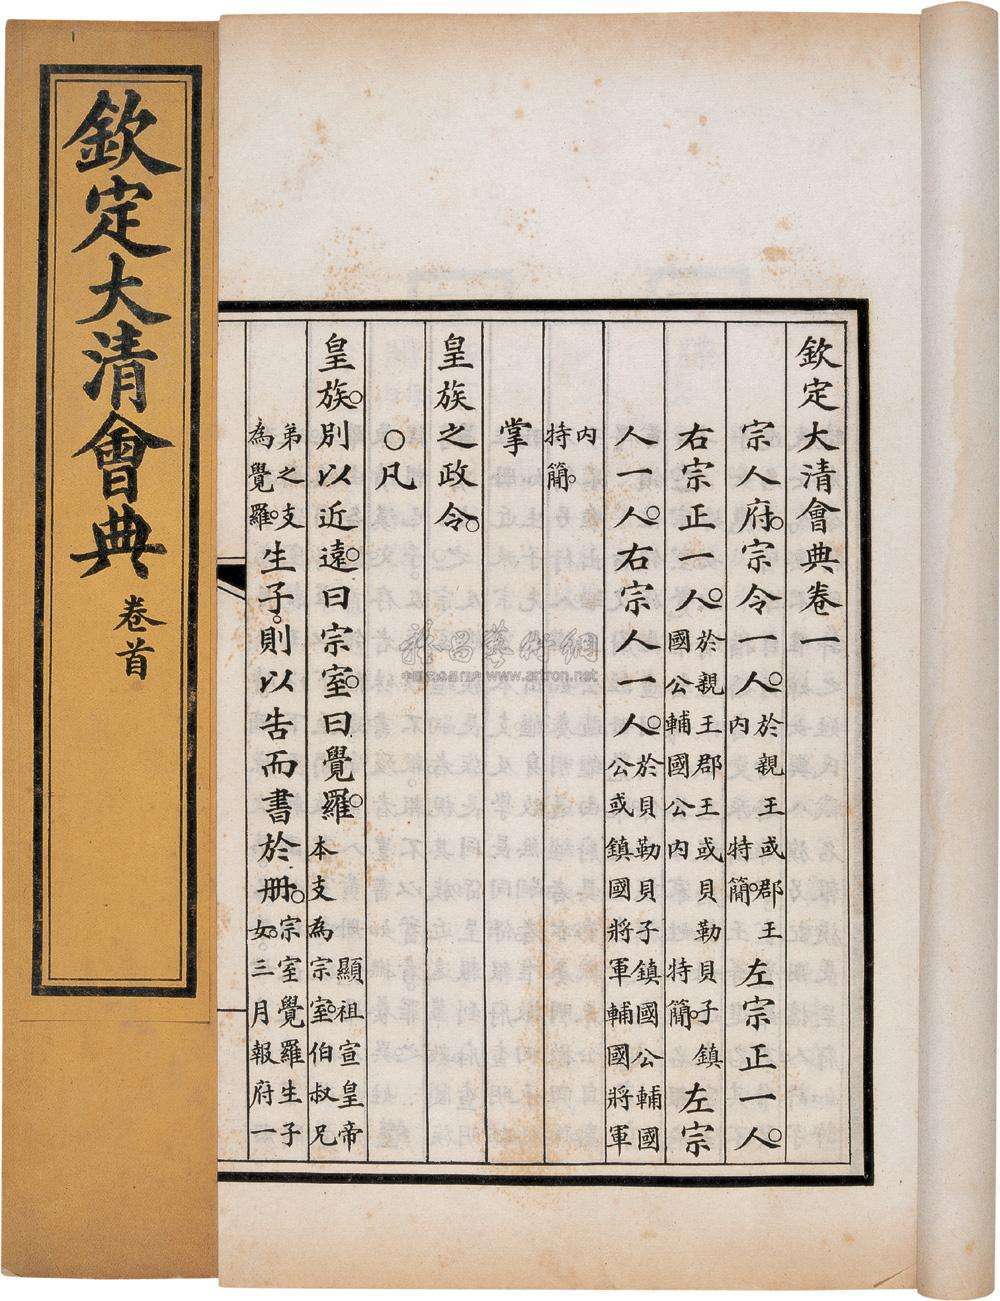 欽定大清會典 卷首
欽定大清會典卷一
宗人府。宗令一人。於親王或郡王內特簡。左宗正一人。
右宗正一人。於親王郡王或貝勒貝子鎮國公輔國公內特簡。左宗
人一人。右宗人一人。於貝勒貝子鎮國公輔國公或鎮國將軍輔國將軍
內特簡。
掌
皇族之政令。
○凡
皇族。別以近遠。曰宗室。曰覺羅。顯祖宣皇帝本支為宗室。伯叔兄
弟之支為覺羅。生子。則以告而書於冊。宗室覺羅生子女。三月報府一
雅昌藝術網